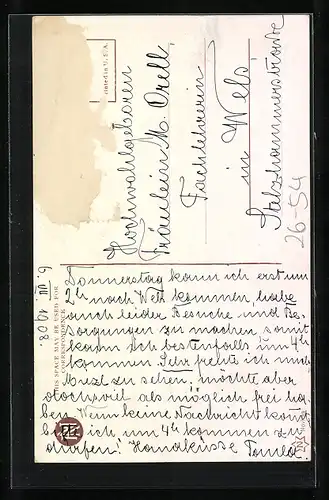 Printed in U.S.A.
Hochwohlgeboren
Fräulein M. Orell
Fachlehrerin
in Wels
Salzhammerstrasse
26-54
6. VII. 1908.
THIS SPACE MAY BE USED FOR
CORRESPONDENCE
Donnerstag kann ich erst um
2h nach Wels kommen, habe
auch leider Besuche und Be-
sorgungen zu machen, somit
kann ich bestenfalls um 4h
kommen. Sehr freute ich mich
Muzl zu sehen, möchte aber
doch viel als möglich frei ha-
ben. Wenn keine Nachricht kommt
bitte ich um 4h kommen zu
dürfen! Handküsse